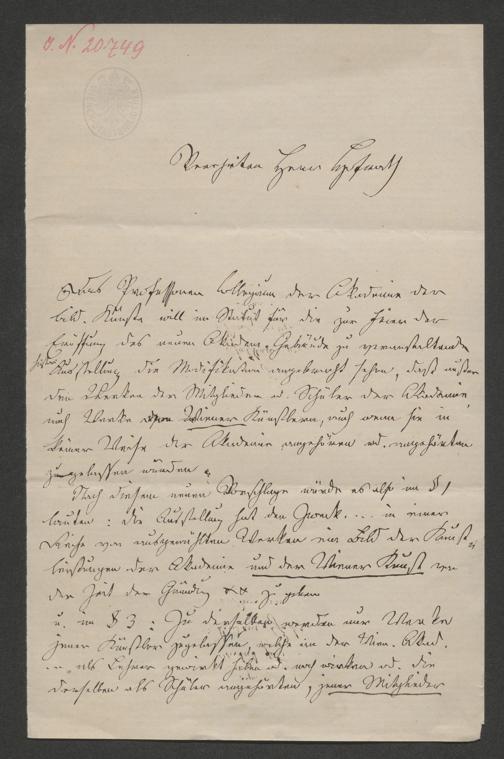 J. N. 20749
Verehrter Herr Hofrath
Das Professoren Collegium der Akademie der
bild. Künste will im Statut für die zur Feier der
Eröffnung des neuen Akadem. Gebäude zu veranstaltende
Ausstellung die Modifikation angebracht sehen, daß außer
den Werken der Mitglieder u. Schüler der Akademie
auch Werke Wiener Künstlern, auch wenn sie in
keiner Weise der Akademie angehören od. angehörten
zugelassen würden.
Nach diesem neuen Vorschlage würde es also im § 1
lauten: die Ausstellung hat den Zweck .... in einer
Reihe von ausgewählten Werken ein Bild der Kunst
leistungen der Akademie und der Wiener Kunst von
der Zeit der Gründung zu geben
u. im § 3: Zu derselben werden nur Werke
jener Künstler zugelassen, welche in der Wien. Akad.
... als Lehrer gewirkt haben od. noch wirken od. die
derselben als Schüler angehörten, jener Mitglieder